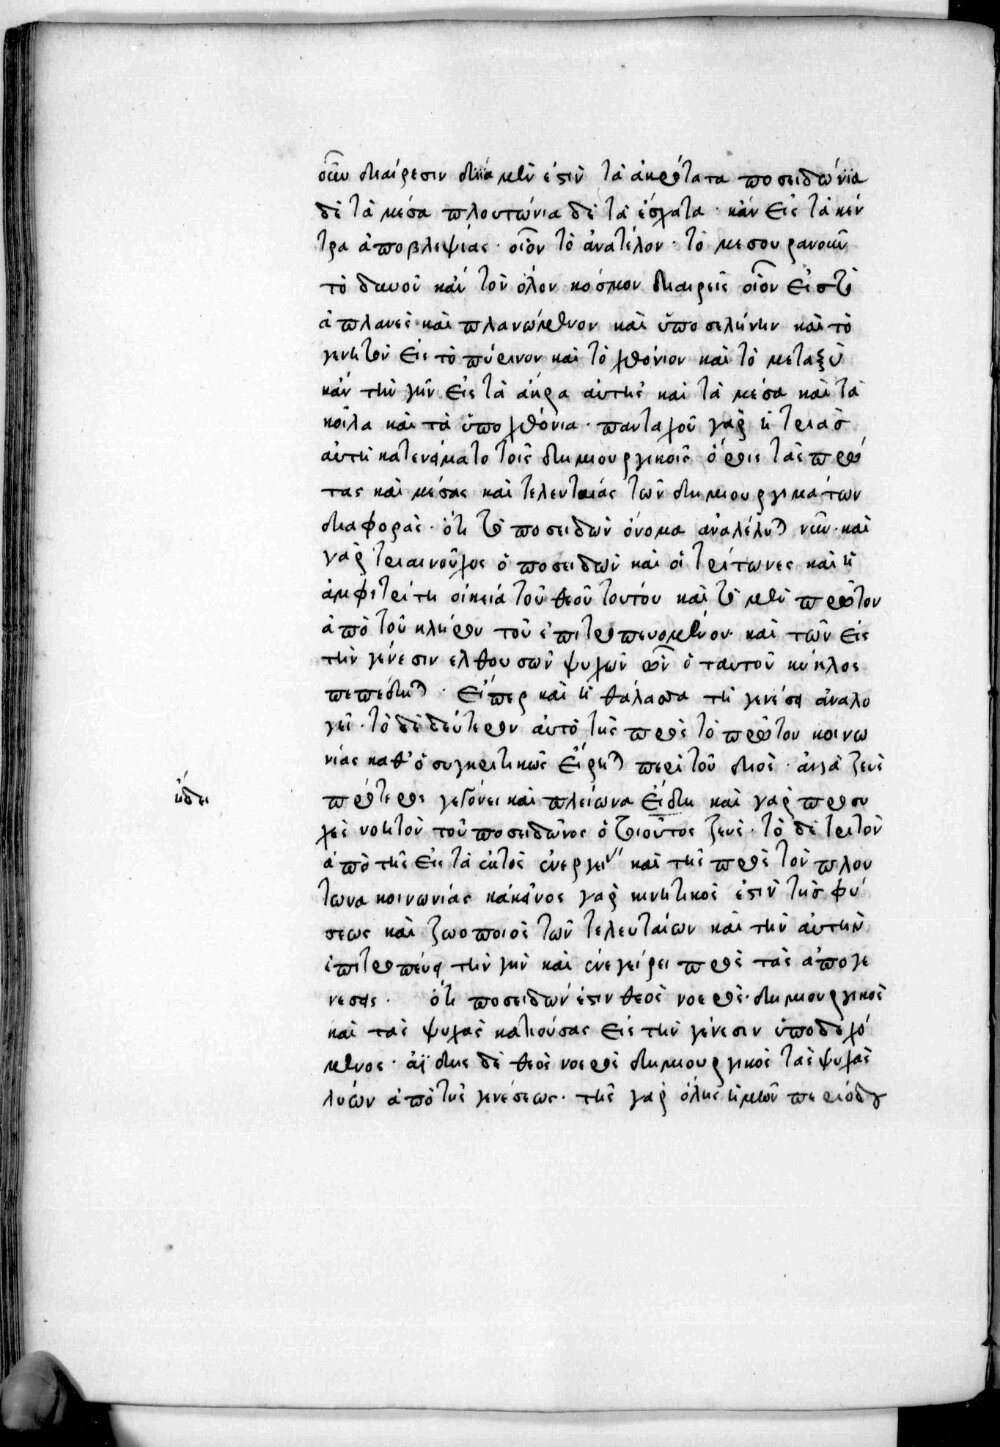 οὖν διαίρεσιν δίϊα μὲν ἐστὶν τὰ ἀκρότατα ποσειδώνϊα
δὲ τὰ μέσα πλουτώνια δὲ τὰ ἔσχατα· κἂν εἰς τὰ κέν
τρα ἀποβλέψϊας· οἷον τὸ ἀνατέλον· τὸ μεσουρανοῦν
τὸ δυνον κἂν τὸν ὅλον κόσμον διαιρεῖς οἷον εἰς τὸ
ἀπλανὲς καὶ πλανώμενον καὶ ὑπο σελήνην καὶ τὸ
γενητὸν εἰς τὸ πύρινον καὶ τὸ χθόνιον καὶ τὸ μεταξὺ
κἂν τὴν γῆν εἰς τὰ ἄκρα αὐτῆς καὶ τὰ μέσα καὶ τὰ
κοῖλα καὶ τὰ ὑποχθόνια· πανταχοῦ γὰρ ἡ τριὰς
αὐτὴ κατενείματο τοῖς δημιουργικοῖς ὅροις τὰς πρώ
τας καὶ μέσας καὶ τελευταίας τῶν δημιουργημάτων
διαφοράς· ὅτι τὸ ποσειδῶν ὄνομα ἀναλέλυται νῦν· καὶ
γὰρ τριαινοῦχος ὁ ποσειδῶν καὶ οἱ τρίτωνες καὶ ἡ
ἀμφιτρίτη οἰκεία τοῦ θεοῦ τούτου καὶ τὸ μὲν πρῶτον
ἀπὸ τοῦ κλήρου τοῦ ἐπιτροπευομένου καὶ τῶν εἰς
τὴν γένεσιν ελθουσῶν ψυχῶν ὧν ὁ ταυτοῦ κύκλος
πεπέδηται· εἴπερ καὶ ἡ θάλασσα τῇ γενέσει ἀναλο
γεῖ· τὸ δὲ δεύτερον αὐτὸ τῆς πρὸς τὸ πρῶτον κοινω
νίας καθ' ὃ συγκριτικῶς εἴρηται περὶ τοῦ διὸς· ἀλλὰ ζεὺς
πρότερος γεγόνει καὶ πλείωνα εἴδη καὶ γὰρ προσυ
ᾔδει
χεὶς νοητὸν τοῦ ποσειδῶνος ὁ τριοῦτος ζεὺς· τὸ δὲ τρίτον
ἀπὸ τῆς εἰς τὰ ἐκτὸς ἐνεργείας καὶ τῆς πρὸς τὸν πλου
τωνα κοινωνίας κἀκεῖνος γὰρ κινητικὸς ἐστὶν τῆς φύ
σεως καὶ ζωοποιὸς τῶν τελευταίων καὶ τὴν αὐτὴν
ἐπιτροπεύει τὴν γῆν καὶ ἀνεγείρει πρὸς τὰς ἀπογε
νεσεις· ὅτι ποσειδῶν ἐστιν θεὸς νοερὸς· δημιουργικὸς
καὶ τὰς ψυχὰς κατιούσας εἰς τὴν γένεσιν ὑποδεχό
μενος· ἀΐδης δὲ θεὸς νοερὸς δημιουργικὸς τὰς ψυχὰς
λυών ἀπὸ τῆς γενέσεως· τῆς γὰρ ὅλης ἡμῶν περιόδου